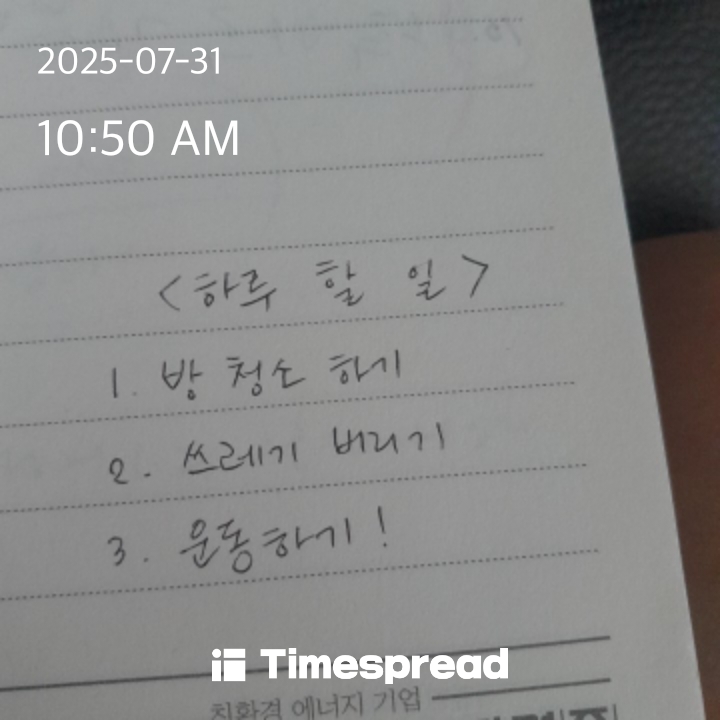 2025-07-31
10:50 AM
<하루 할 일>
1. 방 청소 하기
2. 쓰레기 버리기
3. 운동하기!
Timespread
친환경 에너지 기업